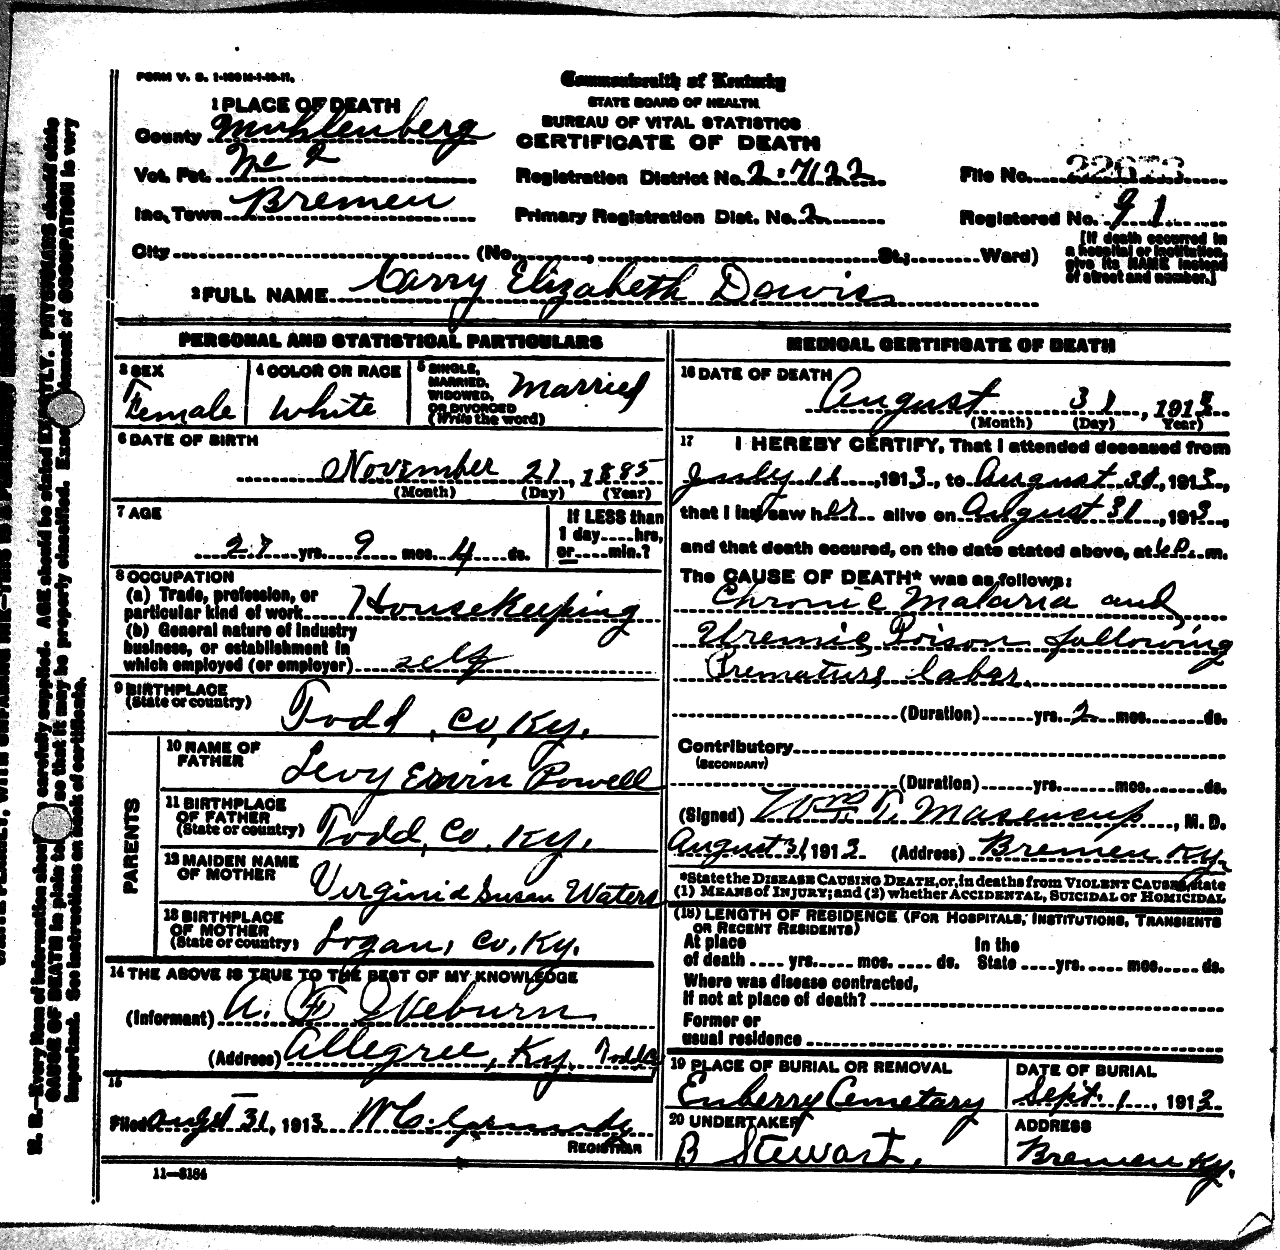 FORM V. S.
Commonwealth of Kentucky
STATE BOARD OF HEALTH.
BUREAU OF VITAL STATISTICS
CERTIFICATE OF DEATH
1 PLACE OF DEATH
County Muhlenberg
Vot. Pct. No 2
Inc. Town Bremen
Registration District No. 2:7122
Primary Registration Dist. No. 2
File No. 22673
Registered No. 91
City (No. , St.; Ward)
[If death occurred in a hospital or institution, give its NAME instead of street and number.]
2 FULL NAME Carry Elizabeth Davis
PERSONAL AND STATISTICAL PARTICULARS
3 SEX
Female
4 COLOR OR RACE
White
5 SINGLE, MARRIED, WIDOWED, OR DIVORCED (Write the word)
Married
6 DATE OF BIRTH
November 21, 1885
(Month) (Day) (Year)
7 AGE
27 yrs. 9 mos. 4 ds.
If LESS than 1 day....hrs, or.....min.?
8 OCCUPATION
(a) Trade, profession, or
particular kind of work Housekeeping
(b) General nature of industry
business, or establishment in
which employed (or employer) self
9 BIRTHPLACE
(State or country)
Todd, Co, Ky.
PARENTS
10 NAME OF FATHER
Levy Ervin Powell
11 BIRTHPLACE OF FATHER
(State or country)
Todd, Co, Ky.
12 MAIDEN NAME OF MOTHER
Virginia Susan Waters
13 BIRTHPLACE OF MOTHER
(State or country)
Logan, Co, Ky.
14 THE ABOVE IS TRUE TO THE BEST OF MY KNOWLEDGE
(Informant) A. F.
(Address) Allegree, Ky. Todd Co
15
Filed Augst 31, 1913
REGISTRAR
11—3184
MEDICAL CERTIFICATE OF DEATH
16 DATE OF DEATH
August 31, 1913
(Month) (Day) Year)
17 I HEREBY CERTIFY, That I attended deceased from
July 11, 1913, to August 31, 1913,
that I last saw her alive on August 31, 1913,
and that death occured, on the date stated above, at P. m.
The CAUSE OF DEATH* was as follows:
Chronic Malaria and
Uremic Poison following
Premature labor.
(Duration) yrs. 2 mos. ds.
Contributory
(SECONDARY)
(Duration) yrs. mos. ds.
(Signed) Wm T. Masencup, M. D.
August 31 1913 (Address) Bremen Ky.
*State the DISEASE CAUSING DEATH, or, in deaths from VIOLENT CAUSES, state
(1) MEANS OF INJURY; and (2) whether ACCIDENTAL, SUICIDAL OR HOMICIDAL
(18) LENGTH OF RESIDENCE (FOR HOSPITALS, INSTITUTIONS, TRANSIENTS
OR RECENT RESIDENTS)
At place of death .... yrs. .... mos. .... ds.
In the State .... yrs. .... mos. .... ds.
Where was disease contracted,
If not at place of death?
Former or
usual residence
19 PLACE OF BURIAL OR REMOVAL
Enberry Cemetary
DATE OF BURIAL
Sept. 1, 1913
20 UNDERTAKER
B Stewart,
ADDRESS
Bremen Ky.
N. B.—Every item of information should be carefully supplied. AGE should be stated EXACTLY. PHYSICIANS should state
CAUSE OF DEATH in plain so that it may be properly classified. Exact statement of OCCUPATION is very
important. See instructions on back of certificate.